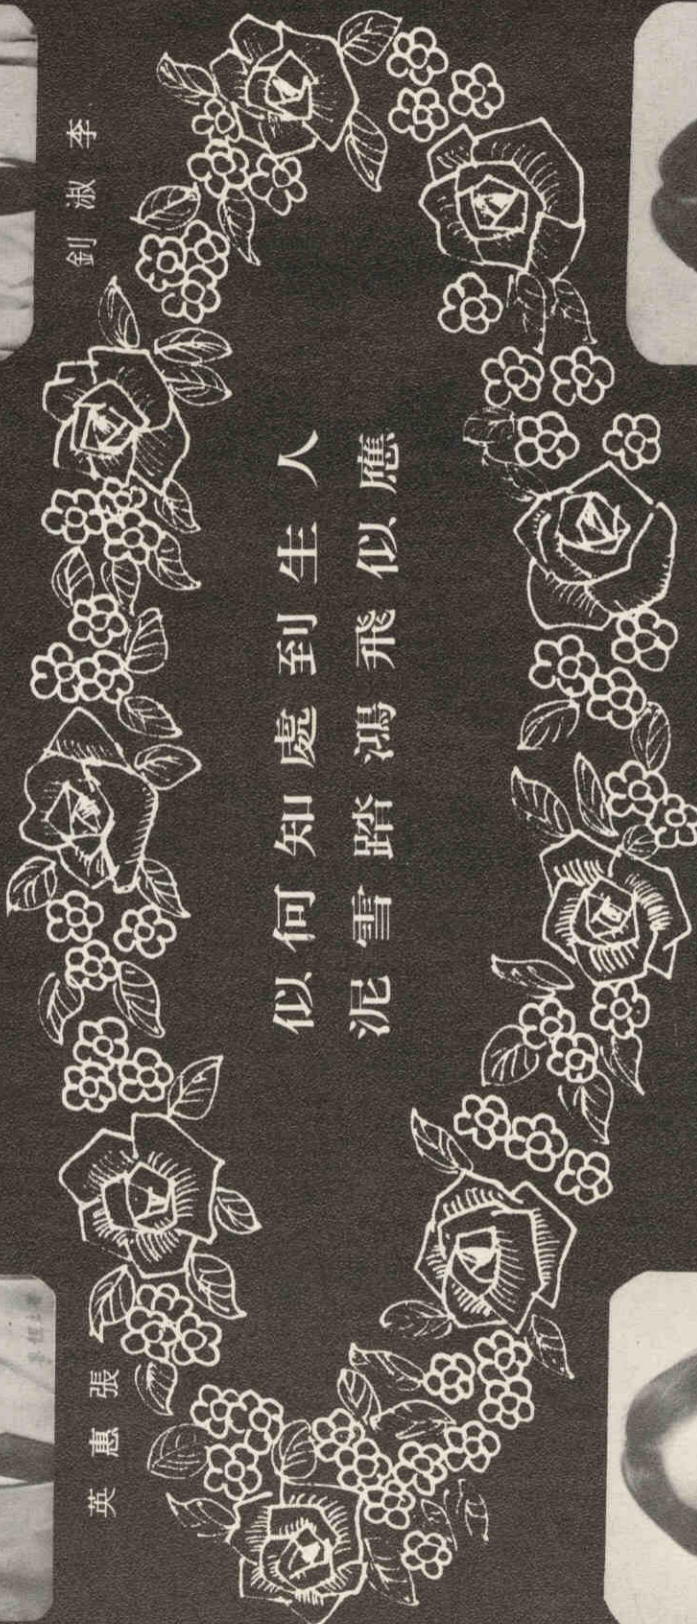 李淑釧
張惠英
人生到處知何似
應似飛鴻踏雪泥